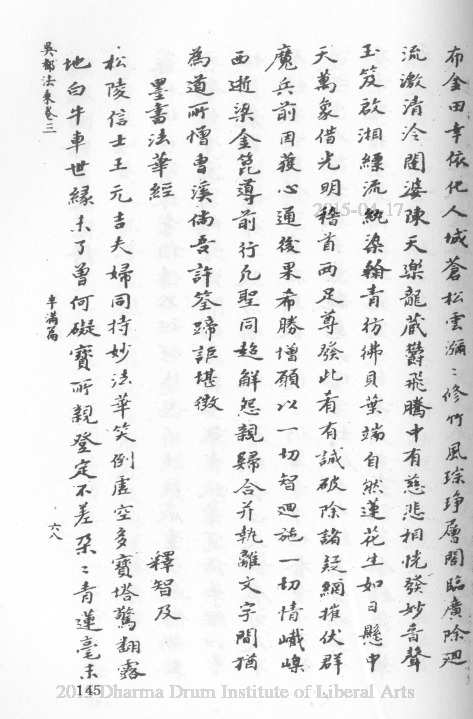 布金田幸依化人城蒼松雲瀰瀰修竹風琮琤層閣臨廣除廻
流激清泠闥婆陳天樂龍藏欝飛騰中有慈悲相恍發妙音聲
玉笈啟湘縹流統染翰青彷彿貝葉端自然蓮花生如日懸中
天萬象借光明稽首兩足尊發此有有誠破除諸疑網摧伏群
魔兵前因獲心通後果希勝增願以一切智迴施一切情巇嵲
西逝梁金箆導前行凡聖同超解怨親歸合并執離文字間猶
為道所憎曹溪倘吾許筌蹄詎堪徵
墨書法華經
釋智及
松陵信士王元吉夫婦同持妙法華笑倒虛空多寶塔驚翻露
地白牛車世緣未了曾何礙寶所親登定不差朶朶青蓮毫末
吳都法乘卷三
車滿篇
六八
145
2015-04-17
Dharma Drum Institute of Liberal Arts